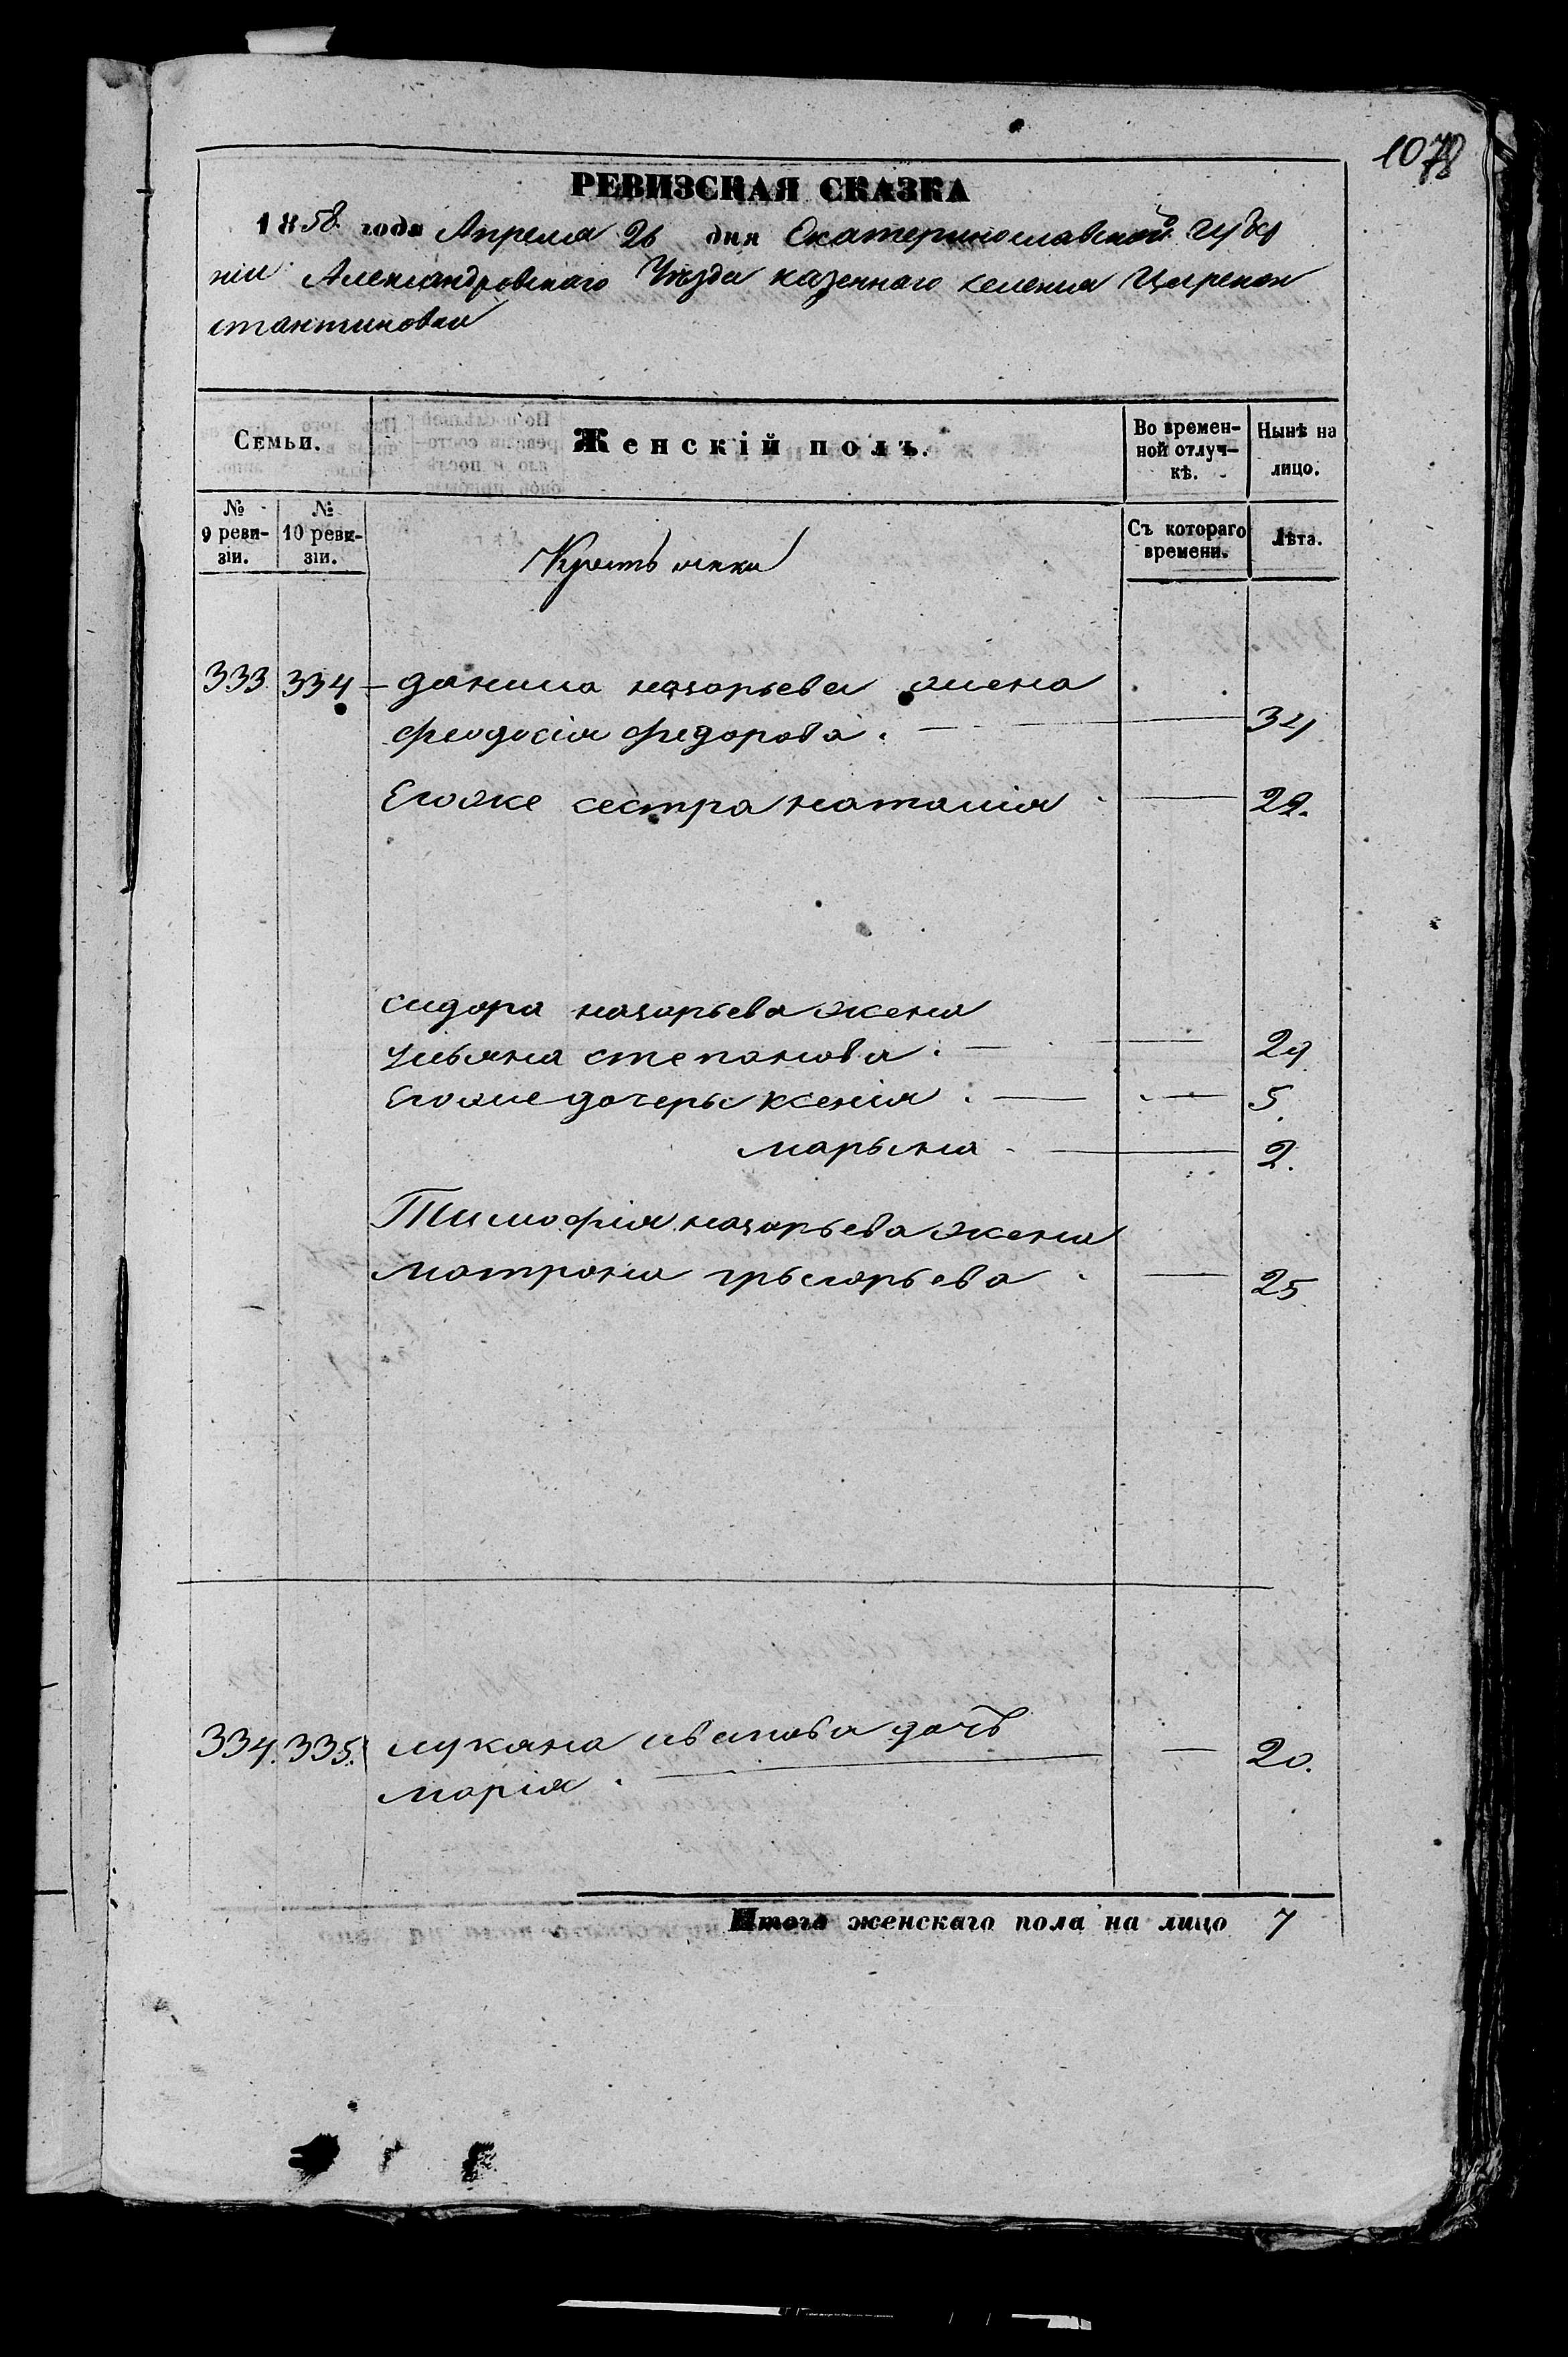 1078
РЕВИЗСКАЯ СКАЗКА
1858 года Апреля 26 дня Екатеринославской Губер
ніи Александровскаго Уѣзда казеннаго селенія Царекон
стантиновки
Семьи.
Женскій полъ.
Во времен-
ной отлуч-
кѣ.
Нынѣ на
лицо.
№
9 реви-
зіи.
№
10 реви-
зіи.
Крестьянки
Съ котораго
времени.
Лѣта.
333. 334 данила назарьева жена
феодосія федорова. 34
Егоже сестра наталія 22.
сидора назарьева жена
ульяна степанова. 29
Егоже дочеры ксенія. 5.
марьяна 2.
Тимофія назарьева жена
матрона грыгорьева 25
334. 335. лукяна иванова дочь 20.
марія.
Итого женскаго пола на лицо 7